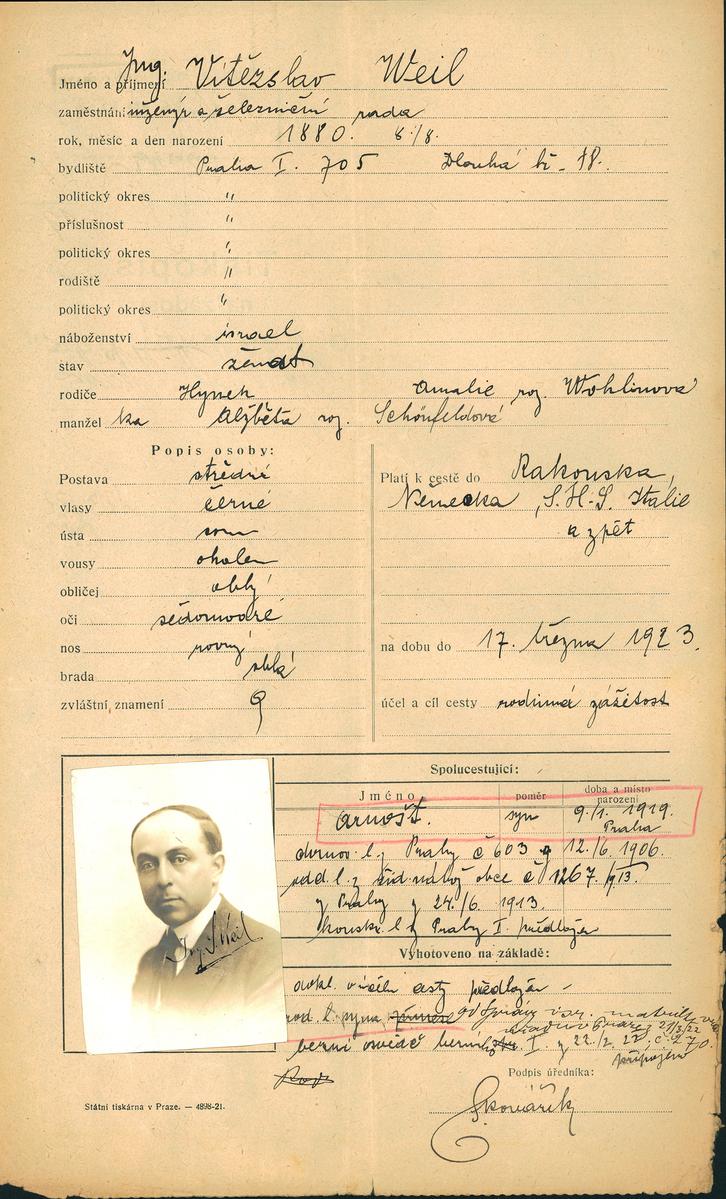 Jméno a příjmení Ing. Vítězslav Weil
zaměstnání inženýr a železniční rada
rok, měsíc a den narození 1880. 8./8.
bydliště Praha I. 705 Dlouhá tř. 18.
politický okres "
příslušnost "
politický okres "
rodiště "
politický okres "
náboženství israel
stav ženat
rodiče Hynek Amalie roz. Wohlinova
manžel ka Alžběta roz. Schönfeldová
Popis osoby:
Postava střední
vlasy černé
ústa soum
vousy oholen
obličej oblý
oči šedomodré
nos rovný
brada oblá
zvláštní znamení
Platí k cestě do Rakouska,
Německa, S.H.S. Italie
a zpět
na dobu do 17. března 1923.
účel a cíl cesty rodinná záležitost
Spolucestující:
Jméno poměr doba a místo narození
Arnošt. syn 9./1. 1919. Praha
domov. l. z Prahy č 603 z 12./6. 1906.
odd. l. z žid. nábož obce č 1267/913.
z Prahy z 24./6. 1913.
konskr. l. z Prahy I. předložen
Vyhotoveno na základě:
dokl. o účelu cesty předložen
rod. l. syna od Správy isr. matriky
úřadu v Praze z 21/3 22
berní osvědč I. z 22./2. 22, č. 270.
připojeno
Ing V Weil
Podpis úředníka:
Skovářík
Státní tiskárna v Praze. — 4898-21.